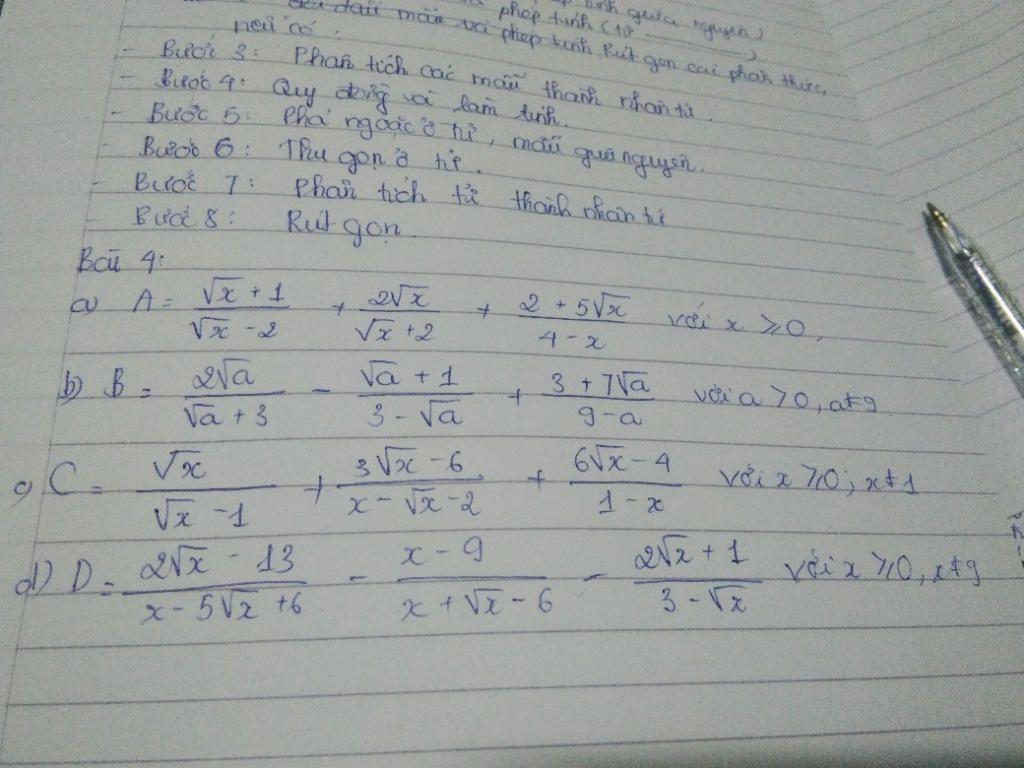 phép tính (từ
dấu mẫu và phép tính Rút gọn các phân thức,
nếu có.
- Bước 3: Phân tích các mẫu thành nhân tử.
- Bước 4: Quy đồng và làm tính.
- Bước 5: Phá ngoặc ở tử, mẫu giữ nguyên.
- Bước 6: Thu gọn ở tử.
- Bước 7: Phân tích tử thành nhân tử
- Bước 8: Rút gọn
Bài 4:
a) A = (√x + 1)/(√x - 2) + (2√x)/(√x + 2) + (2 + 5√x)/(4 - x) với x ≥ 0,
b) B = (2√a)/(√a + 3) - (√a + 1)/(3 - √a) + (3 + 7√a)/(9 - a) với a > 0, a ≠ 9
c) C = (√x)/(√x - 1) + (3√x - 6)/(x - √x - 2) + (6√x - 4)/(1 - x) với x ≥ 0; x ≠ 1
d) D = (2√x - 13)/(x - 5√x + 6) - (x - 9)/(x + √x - 6) - (2√x + 1)/(3 - √x) với x ≥ 0, x ≠ 9